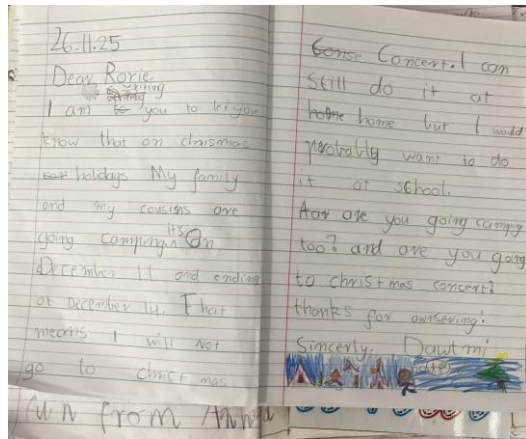 26.11.25
Dear Rorie
writing
I am to you to let you
know that on chrismas
holidays My family
and my cousins are
going camping. it's On
December 11 and ending
at December 14. That
means I will not
go to christmas
Concert. I can
still do it at
home but I would
probably want to do
it at school.
are you going camping
too? and are you going
to christmas concert?
thanks for awnsering!
Sincerly, Dawtmi
fun from